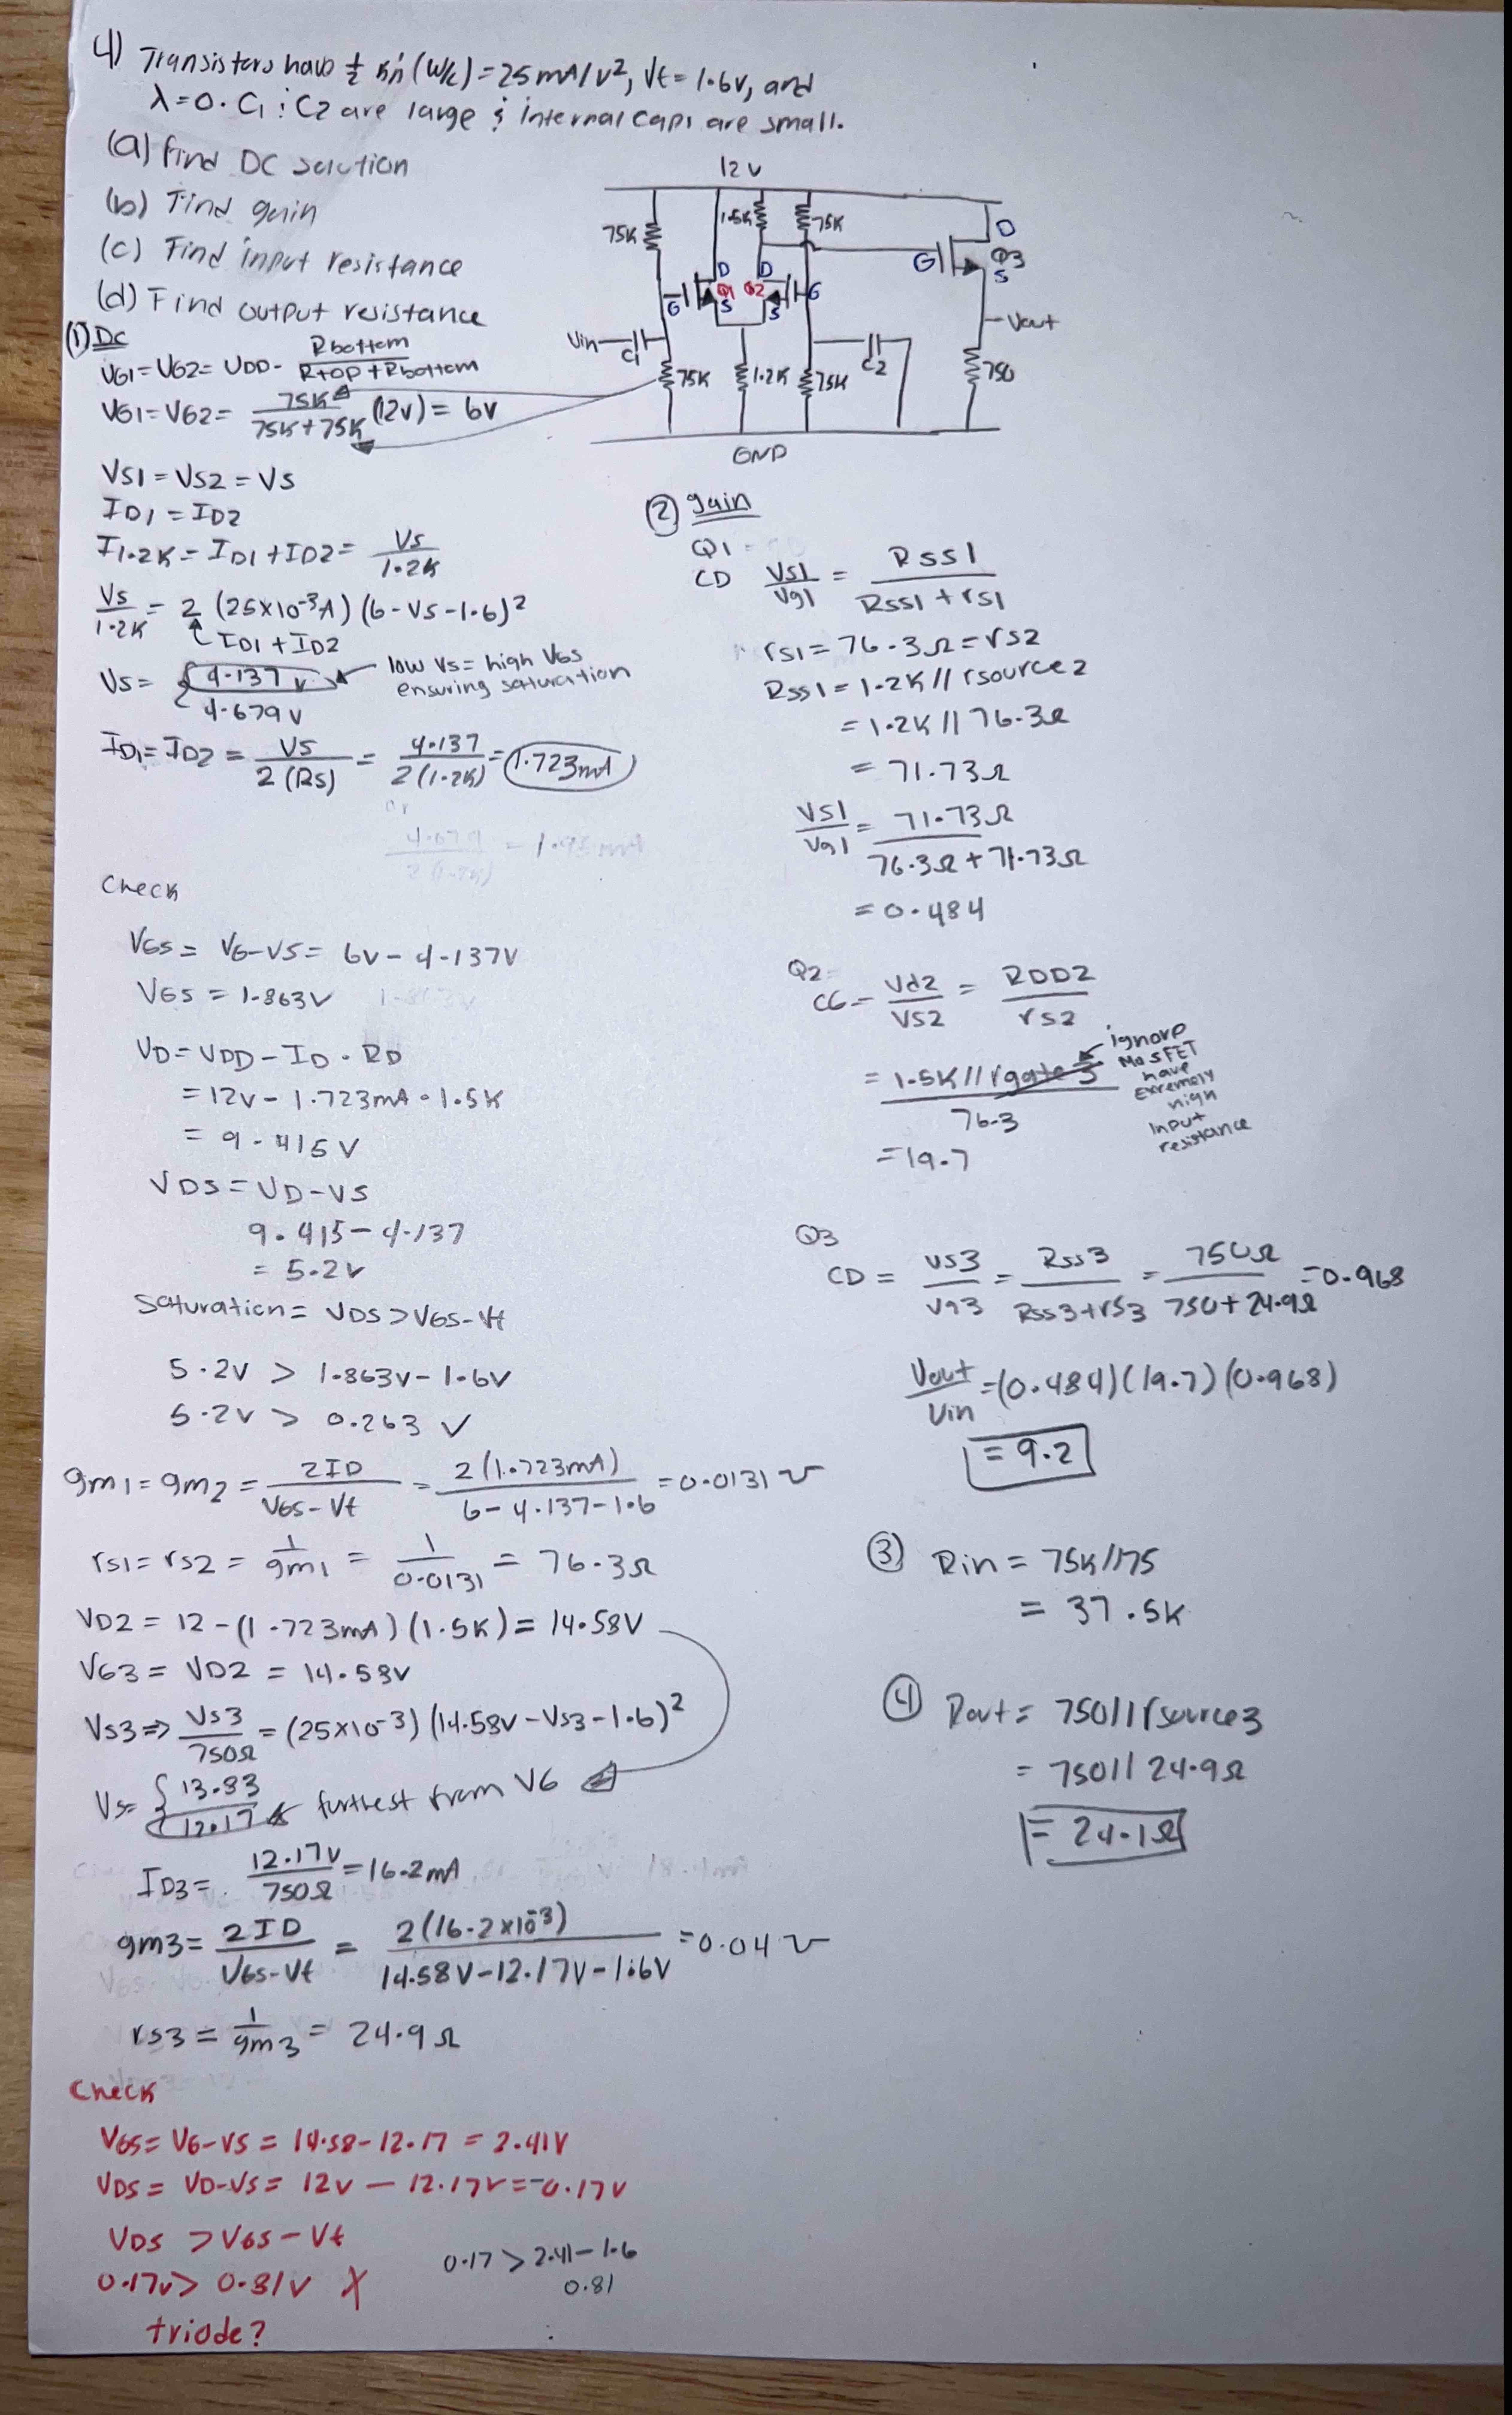 4) Transistors have ½ kn'(W/L) = 25 mA/V², Vt = 1.6V, and
λ=0. C1 ; C2 are large ; internal caps are small.
(a) find DC solution
(b) Find gain
(c) Find input resistance
(d) Find output resistance
12V
75K
1.5K
75K
D
G
Q3
S
D
D
G
Q1
Q2
G
S
S
Vin
C1
C2
Vout
75K
1.2K
75K
750
GND
(1) DC
VG1 = VG2 = VDD · Rbottom / Rtop + Rbottom
VG1 = VG2 = 75K / 75K + 75K (12V) = 6V
VS1 = VS2 = VS
ID1 = ID2
I1.2K = ID1 + ID2 = VS / 1.2K
VS / 1.2K = 2 (25×10⁻³A) (6 - VS - 1.6)²
ID1 + ID2
VS = { 4.137 V
4.679 V
low VS = high VGS
ensuring saturation
ID1 = ID2 = VS / 2(RS) = 4.137 / 2(1.2K) = 1.723mA
or
4.679 / 2(1.2K)
Check
VGS = VG-VS = 6V - 4.137V
VGS = 1.863V
1.863V
VD = VDD - ID · RD
= 12V - 1.723mA · 1.5K
= 9.415V
VDS = VD - VS
9.415 - 4.137
= 5.2V
Saturation = VDS > VGS - Vt
5.2V > 1.863V - 1.6V
5.2V > 0.263 ✓
gm1 = gm2 = 2ID / VGS - Vt = 2(1.723mA) / 6 - 4.137 - 1.6 = 0.0131 ℧
rs1 = rs2 = 1 / gm1 = 1 / 0.0131 = 76.3Ω
VD2 = 12 - (1.723mA)(1.5K) = 14.58V
VG3 = VD2 = 14.58V
VS3 ⇒ VS3 / 750Ω = (25×10⁻³) (14.58V - VS3 - 1.6)²
VS = { 13.83
12.17 ← furthest from VG
ID3 = 12.17V / 750Ω = 16.2mA
gm3 = 2ID / VGS - Vt = 2(16.2×10⁻³) / 14.58V - 12.17V - 1.6V = 0.04 ℧
rs3 = 1 / gm3 = 24.9Ω
Check
VGS = VG - VS = 14.58 - 12.17 = 2.41V
VDS = VD - VS = 12V - 12.17V = -0.17V
VDS > VGS - Vt
0.17V > 0.81V X
triode?
0.17 > 2.41 - 1.6
0.81
(2) gain
Q1
CD VS1 / Vg1 = RSS1 / RSS1 + rS1
rs1 = 76.3Ω = rs2
RSS1 = 1.2K // rsource2
= 1.2K // 76.3Ω
= 71.73Ω
VS1 / Vg1 = 71.73Ω / 76.3Ω + 71.73Ω
= 0.484
Q2
CG = Vd2 / VS2 = RDD2 / rs2
= 1.5K // rgate3 / 76.3
ignore
MOSFET
have
Exremely
high
Input
resistance
= 19.7
Q3
CD = VS3 / Vg3 = RSS3 / RSS3 + rS3 = 750Ω / 750 + 24.9Ω = 0.968
Vout / Vin = (0.484)(19.7)(0.968)
= 9.2
(3) Rin = 75K // 75
= 37.5K
(4) Rout = 750 // rsource3
= 750 // 24.9Ω
= 24.1Ω